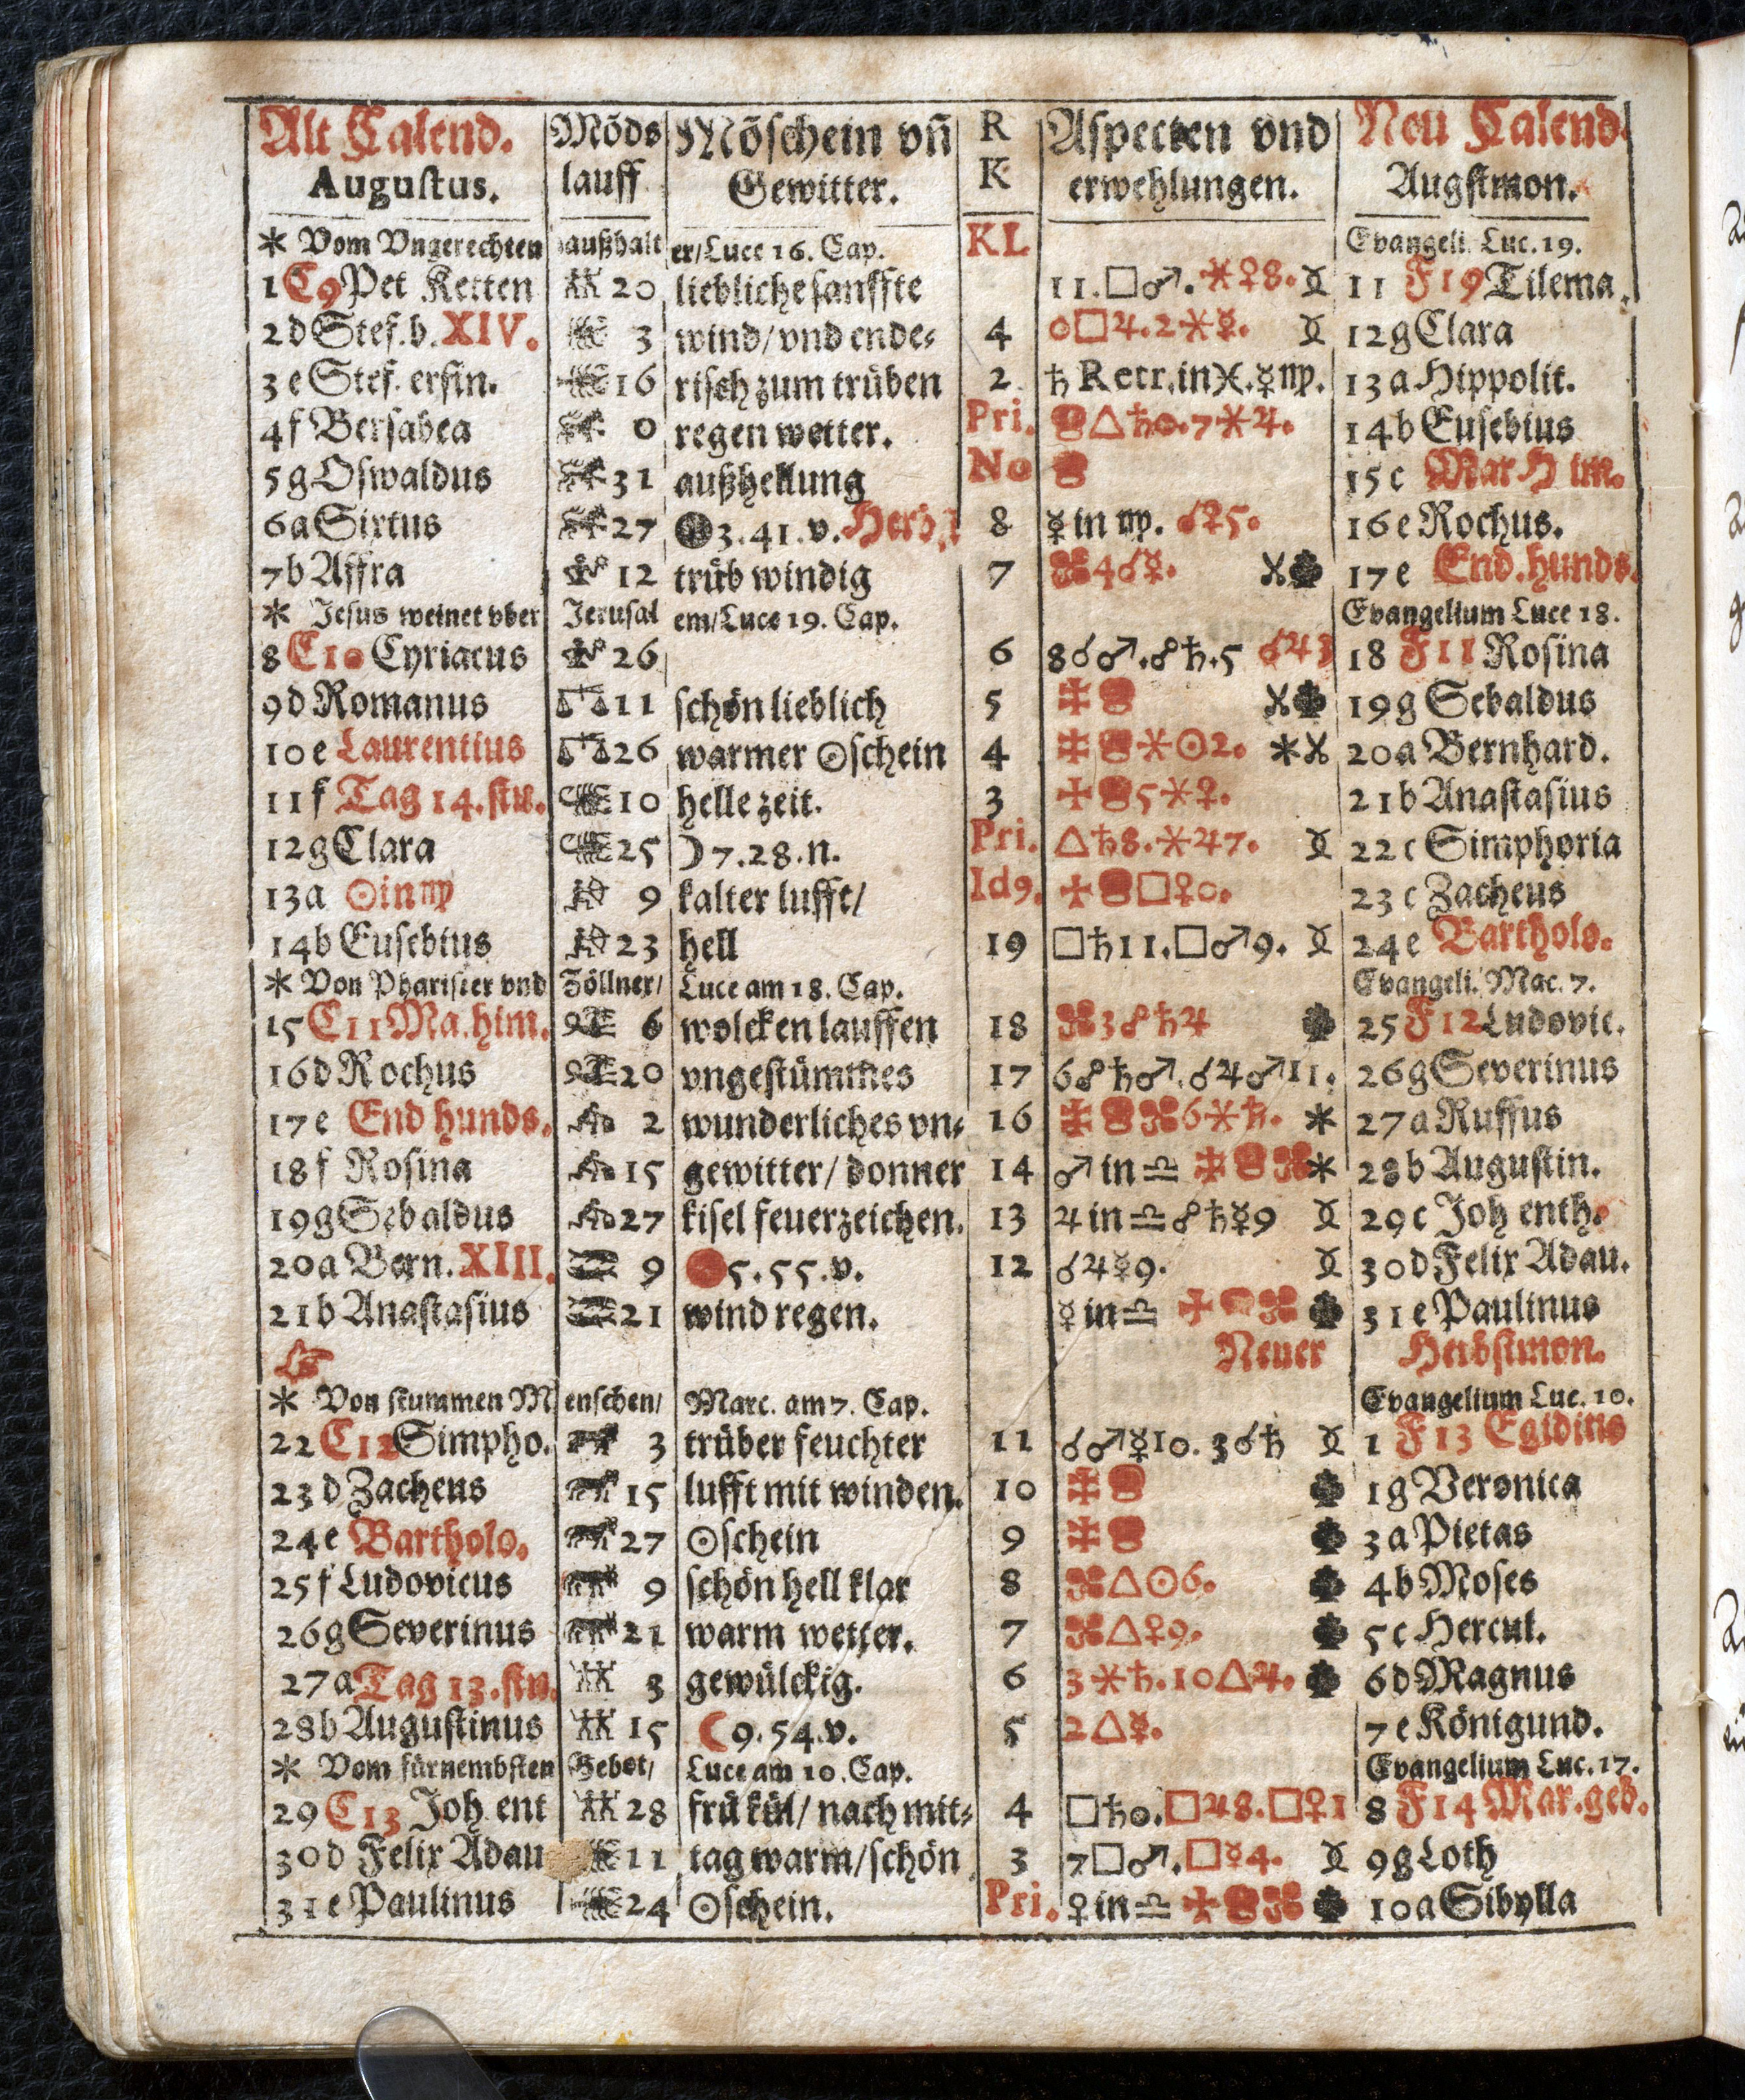 Alt Calend. Mōds Mōschein vn̄ R Aspecten vnd Neu Calend.
Augustus. lauff Gewitter. K erwehlungen. Augstmon.
* Vom Vngerechten haußhalt er/Luce 16. Cap. KL Evangeli. Luc. 19.
1 C9 Pet Ketten 20 liebliche sanffte 11.□♂.⚹♀8. 11 F19 Tilema.
2 d Stef. b. XIV. 3 wind/vnd ende⸗ 4 0□♃.2⚹☿. 12 g Clara
3 e Stef. erfin. 16 risch zum trüben 2 ♄ Retr. in ♓.☿♍. 13 a Hippolit.
4 f Bersabea 0 regen wetter. Pri. △♄0.7⚹♃. 14 b Eusebius
5 g Oswaldus 31 außhellung No 15 c Mar Him.
6 a Sixtus 27 ●3.41.v. Herb. 8 ☿ in ♍. ☌♀5. 16 e Rochus.
7 b Affra 12 trüb windig 7 4☌☿. 17 e End. hunds.
* Jesus weinet vber Jerusal em/Luce 19. Cap. Evangelium Luce 18.
8 C10 Cyriacus 26 6 8☌♂.☍♄.5 ☌♃3 18 F11 Rosina
9 d Romanus 11 schön lieblich 5 19 g Sebaldus
10 e Laurentius 26 warmer ☉schein 4 ⚹☉2. * 20 a Bernhard.
11 f Tag 14. stu. 10 helle zeit. 3 5⚹♀. 21 b Anastasius
12 g Clara 25 ☽7.28.n. Pri. △♄8.⚹♃7. 22 c Simphoria
13 a ☉in♍ 9 kalter lufft/ Id9. □♀0. 23 c Zacheus
14 b Eusebius 23 hell 19 □♄11.□♂9. 24 e Bartholo.
* Von Pharisier vnd Zöllner/ Luce am 18. Cap. Evangeli. Mac. 7.
15 C11 Ma. him. 6 wolcken lauffen 18 3☍♄♃ 25 F12 Ludovic.
16 d Rochus 20 vngestümmes 17 6☍♄♂.☌♃♂11. 26 g Severinus
17 e End hunds. 2 wunderliches vn⸗ 16 6⚹♄. * 27 a Ruffus
18 f Rosina 15 gewitter/ donner 14 ♂ in ♎ * 28 b Augustin.
19 g Sebaldus 27 kisel feuerzeichen. 13 ♃ in ♎ ☍♄☿9 29 c Joh enth.
20 a Bern. XIII. 9 ●5.55.v. 12 ☌♃☿9. 30 d Felix Adau.
21 b Anastasius 21 wind regen. ☿ in ♎ 31 e Paulinus
Neuer Herbstmon.
* Von stummen M enschen/ Marc. am 7. Cap. Evangelium Luc. 10.
22 C12 Simpho. 3 trüber feuchter 11 ☌♂☿10. 3☌♄ 1 F13 Egidius
23 d Zacheus 15 lufft mit winden. 10 1 g Veronica
24 e Bartholo. 27 ☉schein 9 3 a Pietas
25 f Ludovicus 9 schön hell klar 8 △☉6. 4 b Moses
26 g Severinus 21 warm wetter. 7 △♀9. 5 c Hercul.
27 a Tag 13. stu. 3 gewülckig. 6 3⚹♄.10△♃. 6 d Magnus
28 b Augustinus 15 ☾9.54.v. 5 2△☿. 7 e Königund.
* Vom fürnembsten Gebot/ Luce am 10. Cap. Evangelium Luc. 17.
29 C13 Joh. ent 28 frü kül/ nach mit⸗ 4 □♄0.□♃8.□♀1 8 F14 Mar. geb.
30 d Felix Adau 11 tag warm/schön 3 7□♂.□☿4. 9 g Loth
31 e Paulinus 24 ☉schein. Pri. ♀ in ♎ 10 a Sibylla